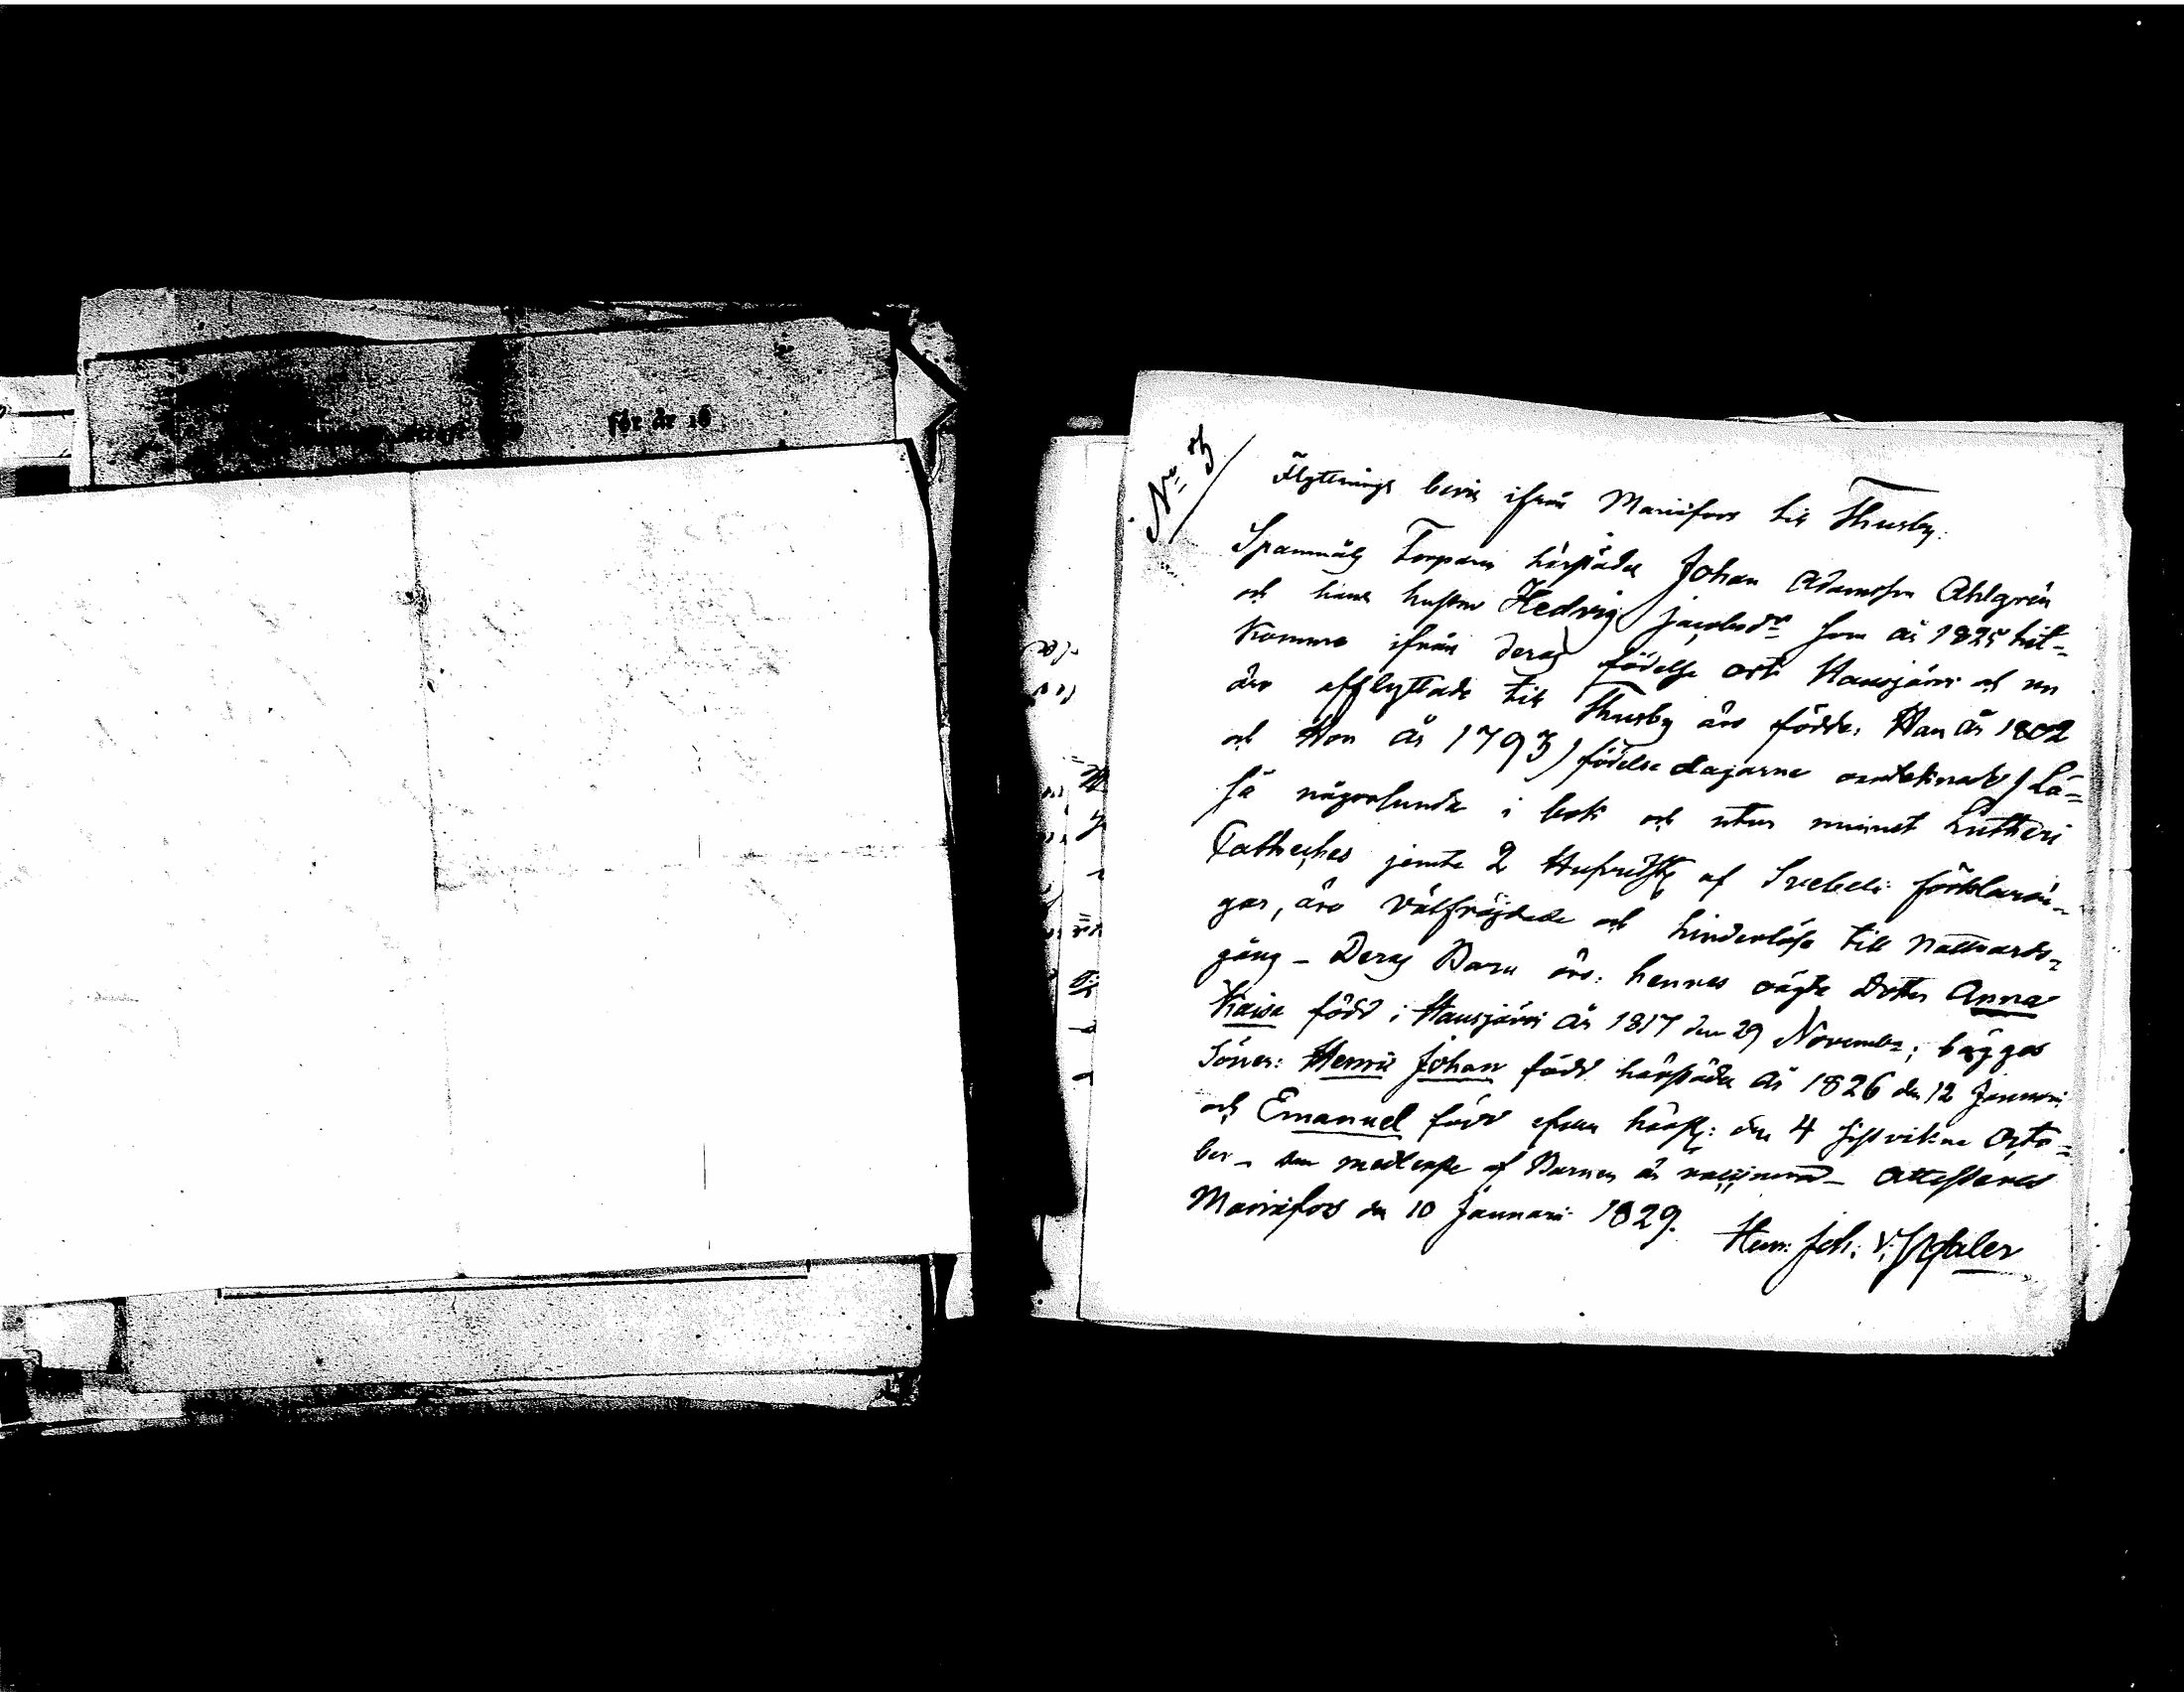 för år 18
No 3
Flyttnings bevis ifrån Mariefors till Thusby.
Spannmåls Torparen härstädes Johan Adamsson Ahlgrén
och hans hustru Hedvig Jacobsdr som år 1825 hit-
komne ifrån deras födelse ort Hausjärvi och nu
äro afflyttade till Thusby äro födde: Han år 1802
och Hon år 1793) födelse dagarne oanteknade / Lä-
sa någorlunda i bok och utur minnet Lutheri
Catheches jemte 2 Hufvudst: af Svebeli förklarin-
gar, äro välfräjdade och hinderlösa till Nattvards-
gång - Deras Barn äro: hennes oägta Dotter Anna
Kaisa född i Hausjärvi år 1817 den 29 November; bägges
Söner: Henric Johan född härstädes år 1826 den 12 Januarii
och Emanuel född äfven härst: den 4 sistvikne Octo-
ber - den medlerste af Barnen är vaccinerad - Attesteras
Mariefors den 10 Januarii 1829.
Henr: Joh: v: Pfaler